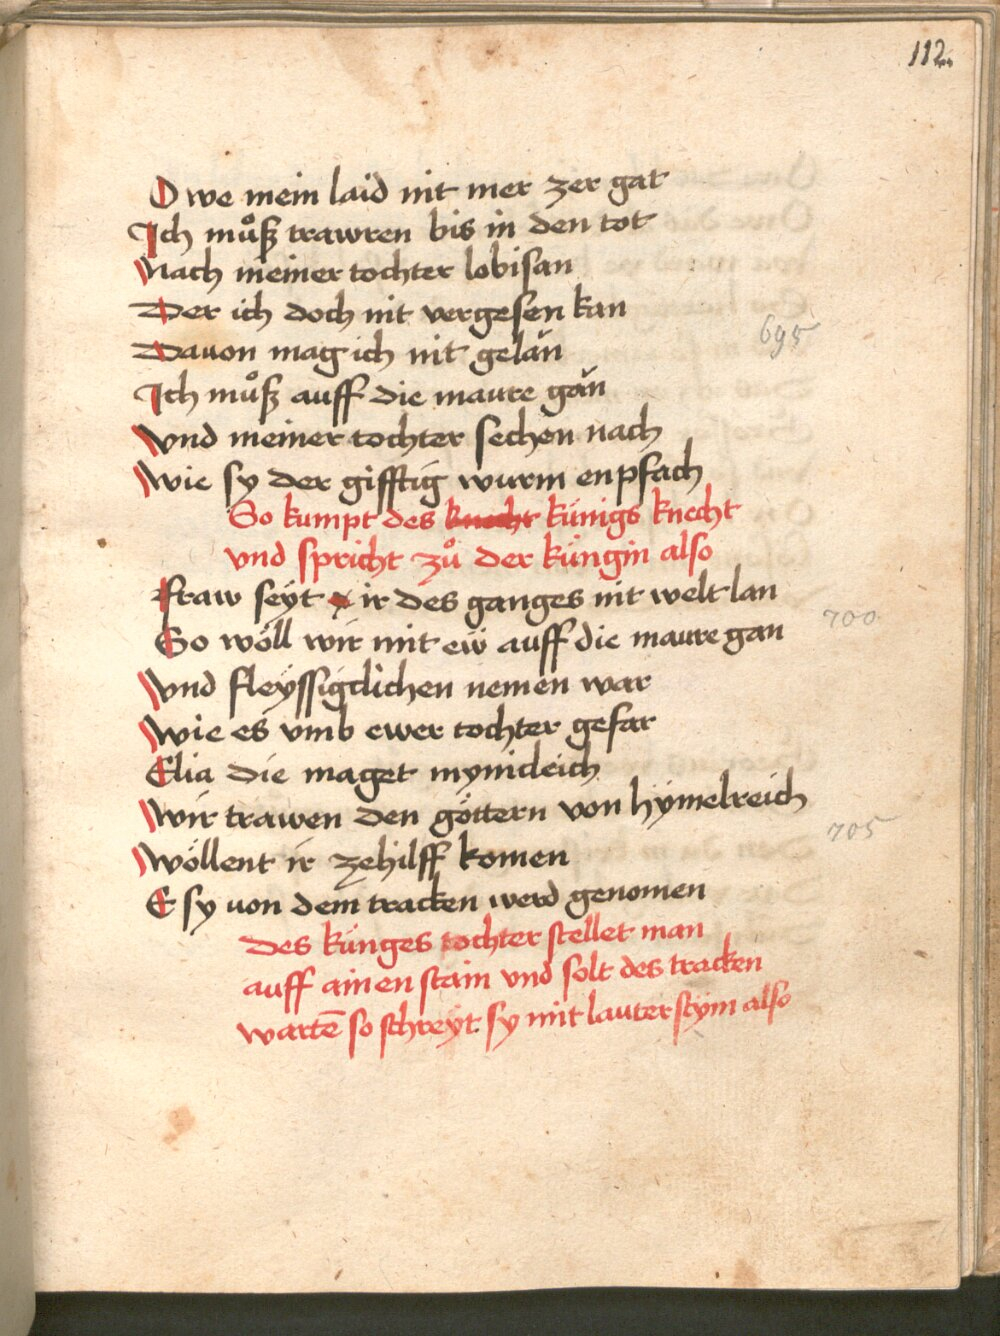 112
O we mein laid nit mer zer gat
Ich můß trawren bis in den tot
Nach meiner tochter lobisan
Der ich doch nit vergesen kan
Dauon mag ich nit gelän
695
Ich můß auff die maure gän
Vnd meiner tochter sechen nach
Wie sy der gifftig wurm enpfach
So kumpt des knecht künigs knecht
vnd spricht zů der küngin also
Fraw seyt ir des ganges nit welt lan
700
So wöll wir mit eẅ auff die maure gan
Vnd fleÿssigclichen nemen war
Wie es vmb ewer tochter gefar
Elia die maget mynicleich
Wir trawen den göttern von hymelreich
705
Wöllent ir ze hilff komen
E sy uon dem tracken werd genomen
Des künges tochter stellet man
auff ain en stain vnd solt des tracken
wartē so schreÿt sy mit lauter stÿm also